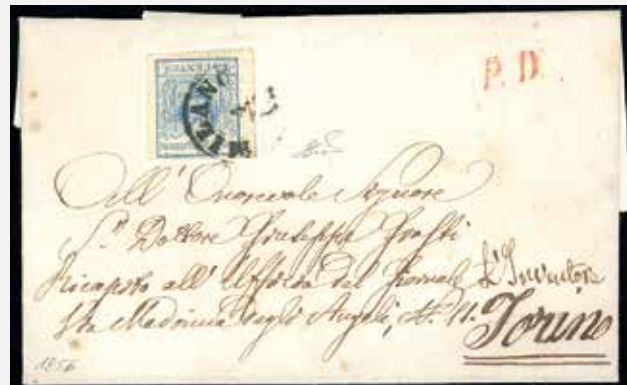 P. D.
MILANO
All' Onorevole Signore
Sr. Dottore Giuseppe
Ricapito all' Uffizio del Giornale L'Inventore
Via Madonna degli Angeli, N. 11. Torino
1856